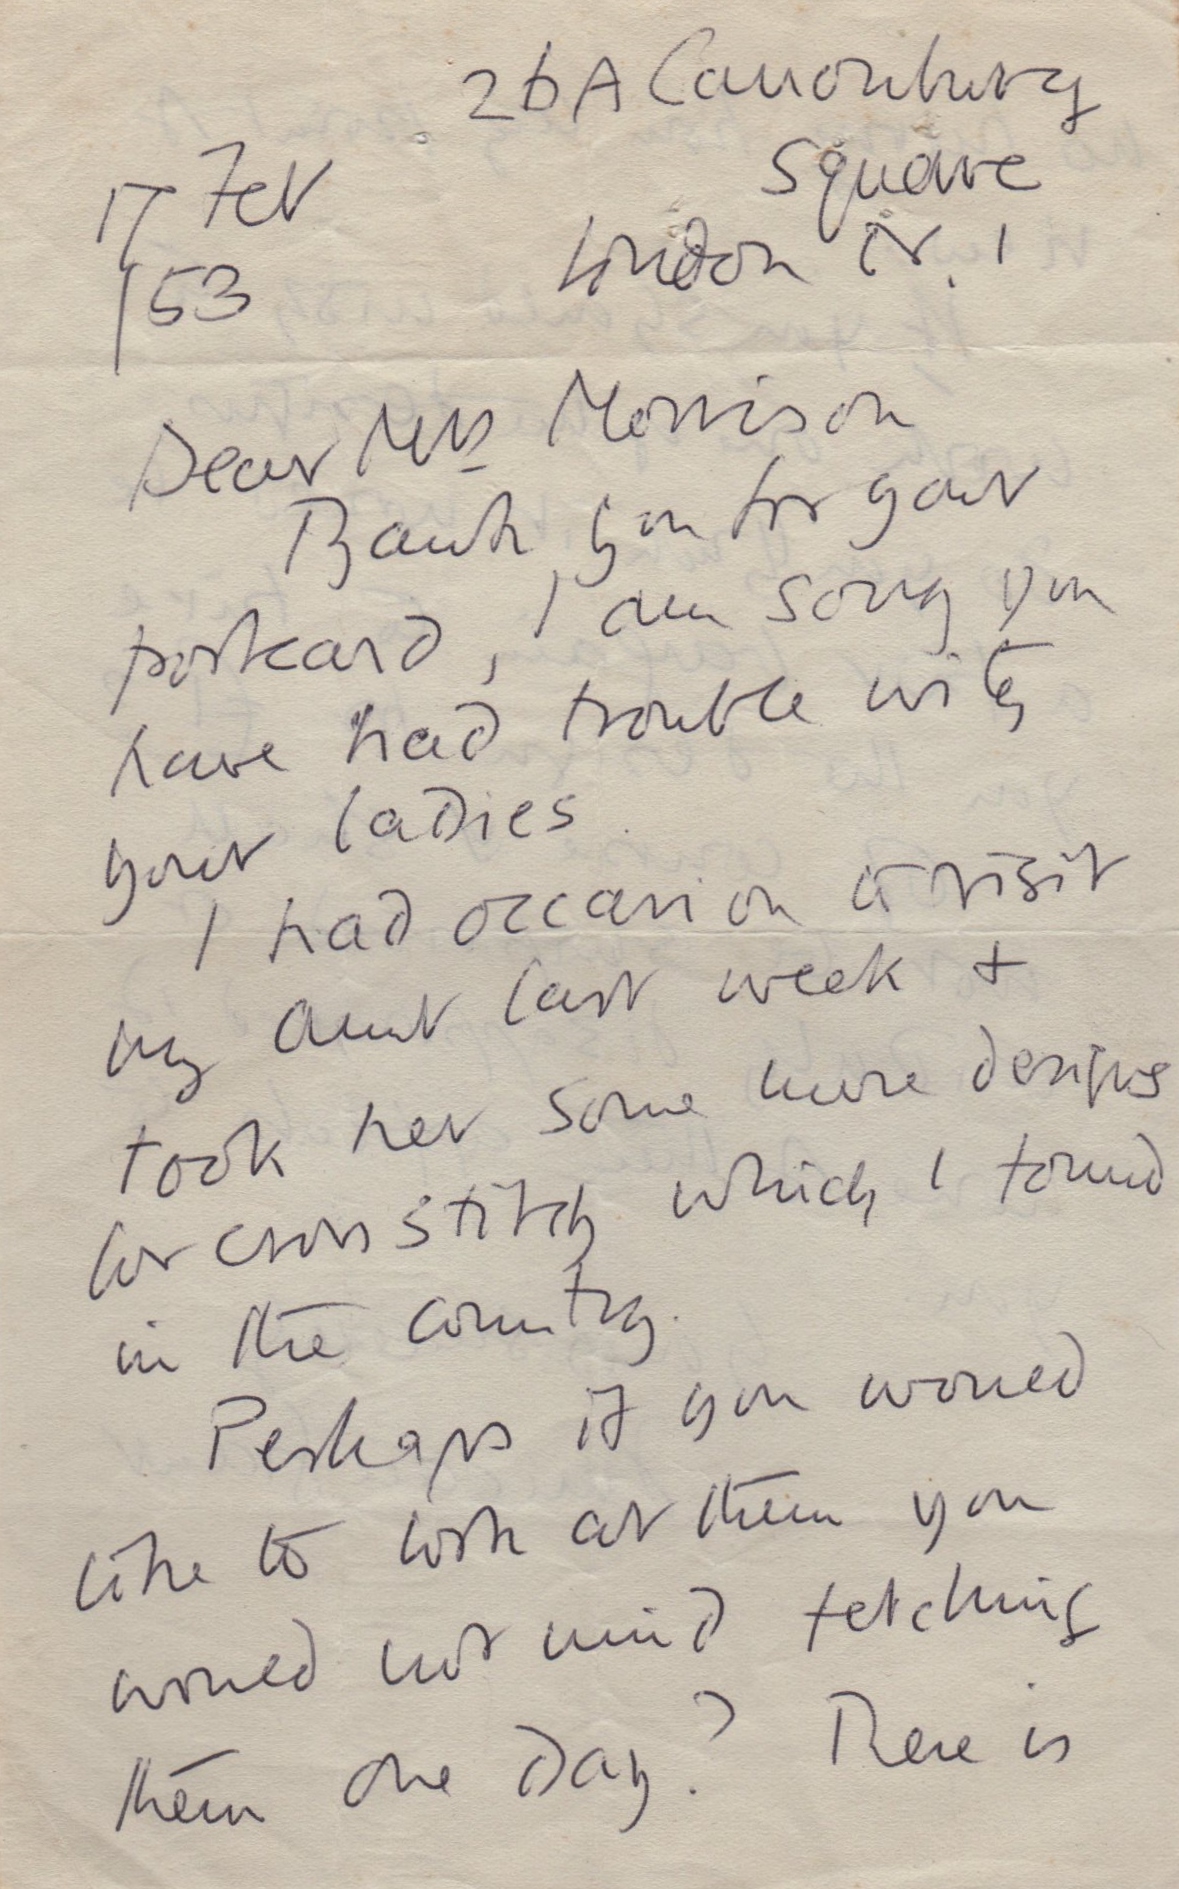 26A Canonbury
Square
London N. 1
17 Feb
/53
Dear Mrs Morrison
Thank you for your
postcard, I am sorry you
have had trouble with
your ladies.
I had occasion to visit
my aunt last week +
took her some more designs
for cross stitch which I found
in the country.
Perhaps if you would
like to look at them you
would not mind fetching
them one day? There is